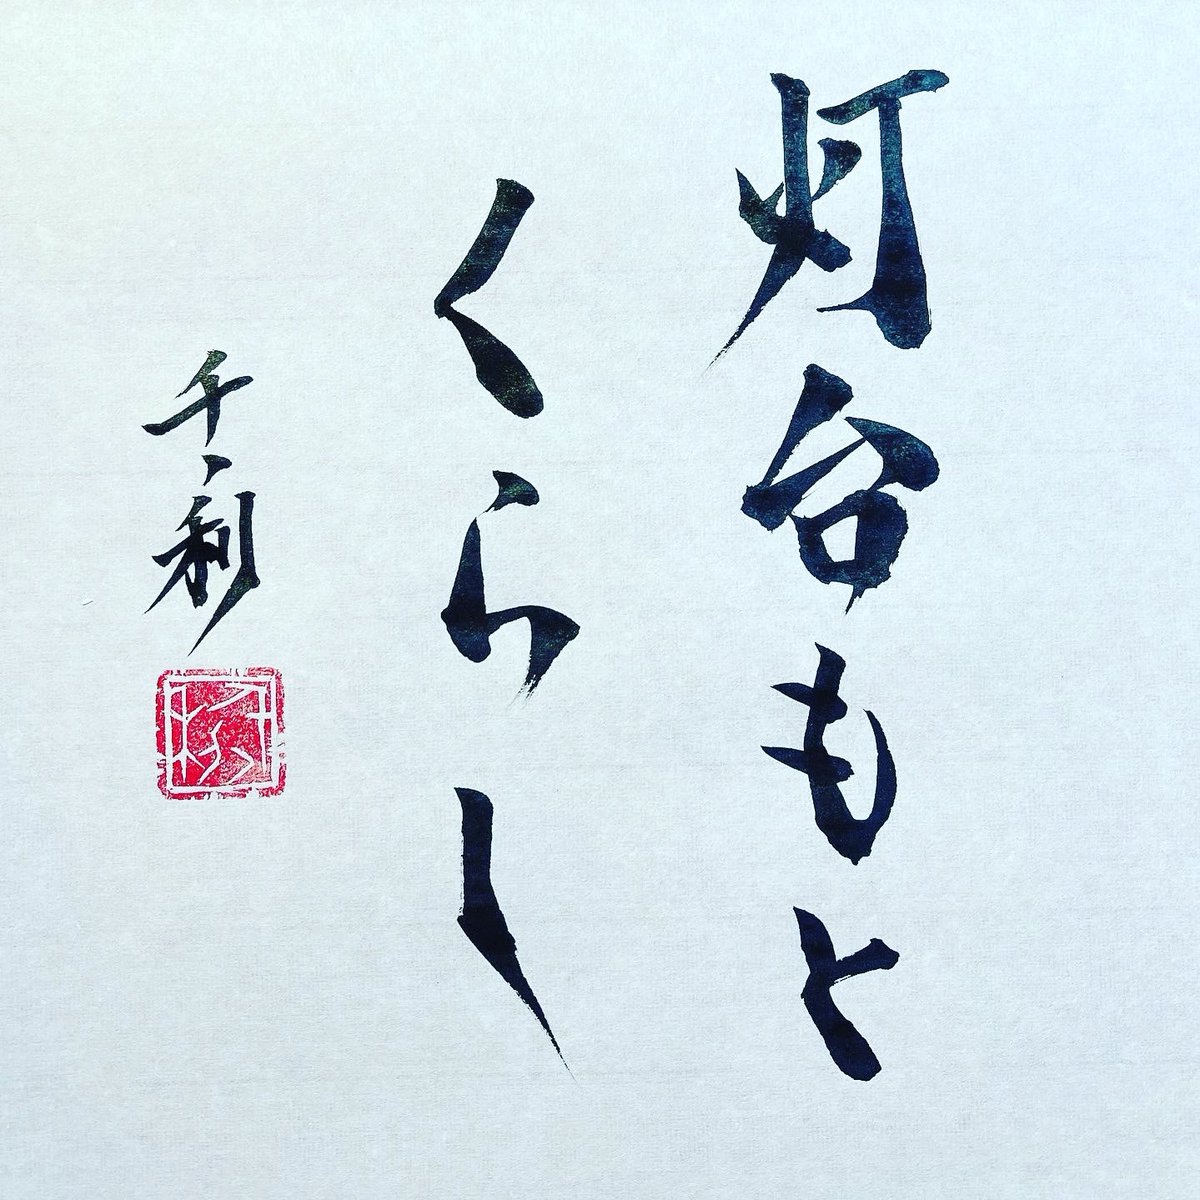 灯台もと
くらし
千利